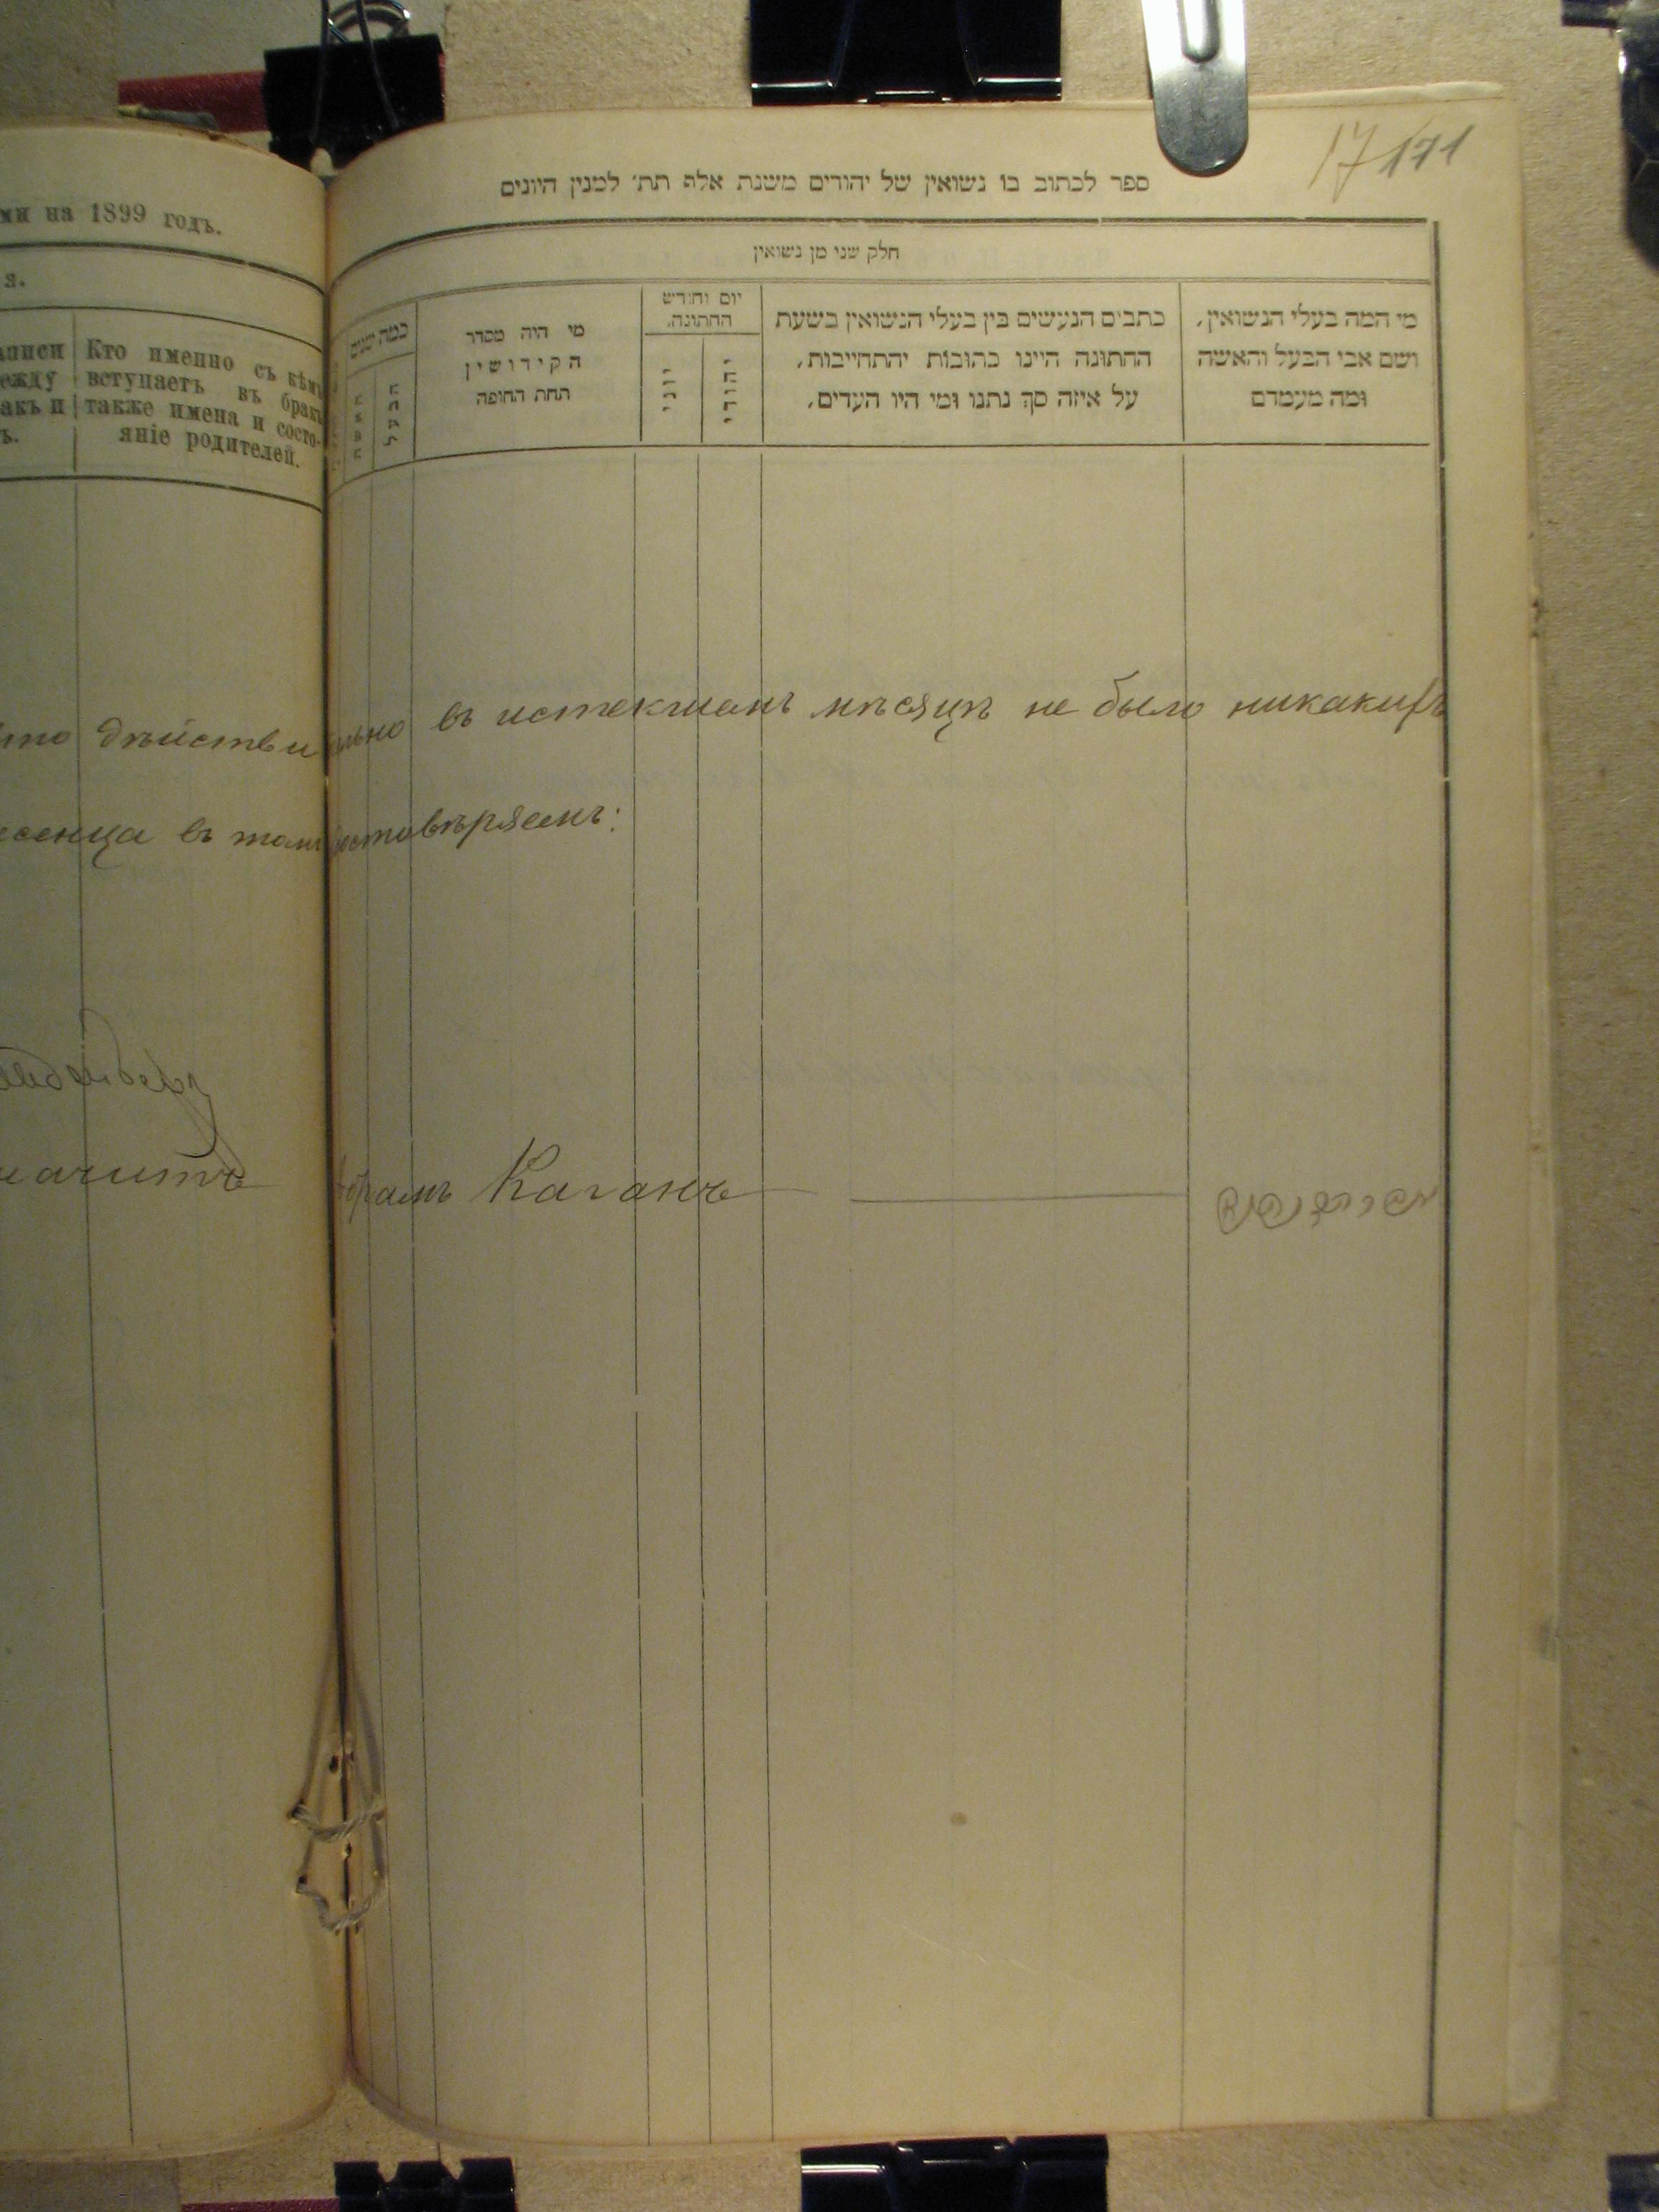 17 171
ми на 1899 годъ.
я.
аписи
ежду
акъ и
ъ.
Кто именно съ кѣмъ
вступаетъ въ бракъ
также имена и состо-
яніе родителей.
ספר לכתוב בו נשואין של יהודים משנת אלף תת׳ למנין היונים
חלק שני מן נשואין
מי המה בעלי הנשואין,
ושם אבי הבעל והאשה
ומה מעמדם
כתבים הנעשים בין בעלי הנשואין בשעת
החתונה היינו כתובות והתחייבות,
על איזה סך נתנו ומי היו העדים,
יום וחודש
החתונה,
יהודי
יוני
מי היה מסדר
הקידושין
תחת החופה
כמה שנים
что дѣйствительно въ истекшемъ мѣсяцѣ не было никакихъ
въ томъ достовѣряемъ:
Абрамъ Каганъ